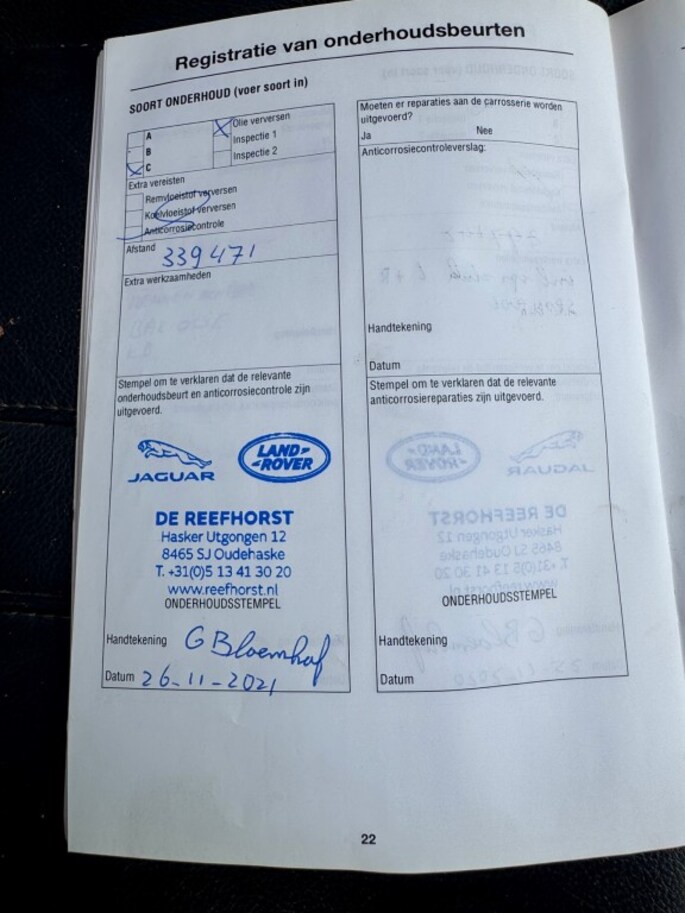 Registratie van onderhoudsbeurten
SOORT ONDERHOUD (voer soort in)
A
B
C
Olie verversen
Inspectie 1
Inspectie 2
Extra vereisten
Remvloeistof verversen
Koelvloeistof verversen
Anticorrosiecontrole
Afstand 339471
Extra werkzaamheden
Stempel om te verklaren dat de relevante
onderhoudsbeurt en anticorrosiecontrole zijn
uitgevoerd.
JAGUAR
LAND-
-ROVER
DE REEFHORST
Hasker Utgongen 12
8465 SJ Oudehaske
T. +31(0)5 13 41 30 20
www.reefhorst.nl
ONDERHOUDSSTEMPEL
Handtekening G Bloemhof
Datum 26-11-2021
Moeten er reparaties aan de carrosserie worden
uitgevoerd?
Ja Nee
Anticorrosiecontroleverslag:
Handtekening
Datum
Stempel om te verklaren dat de relevante
anticorrosiereparaties zijn uitgevoerd.
ONDERHOUDSSTEMPEL
Handtekening
Datum
22